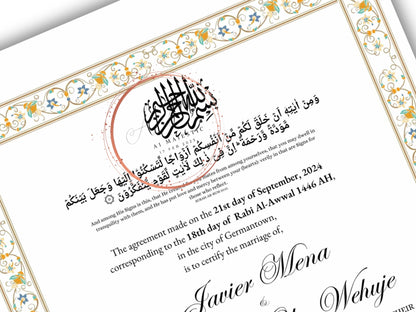 بسم الله الرحمن الرحيم
وَمِنْ آيَتِهِ أَنْ خَلَقَ لَكُم مِّنْ أَنْفُسِكُمْ أَزْوَاجًا لِّتَسْكُنُوا إِلَيْهَا وَجَعَلَ بَيْنَكُم
مَّوَدَّةً وَرَحْمَةً إِنَّ فِي ذَٰلِكَ لَآيَٰتٍ لِّقَوْمٍ يَتَفَكَّرُونَ
And among His Signs is this, that He created for you mates from among yourselves, that you may dwell in
tranquility with them, and He has put love and mercy between your (hearts): verily in that are Signs for
those who reflect.
The agreement made on the 21st day of September, 2024
corresponding to the 18th day of Rabi Al-Awwal 1446 AH,
in the city of Germantown,
is to certify the marriage of,
Javier Mena
&
Wehuje